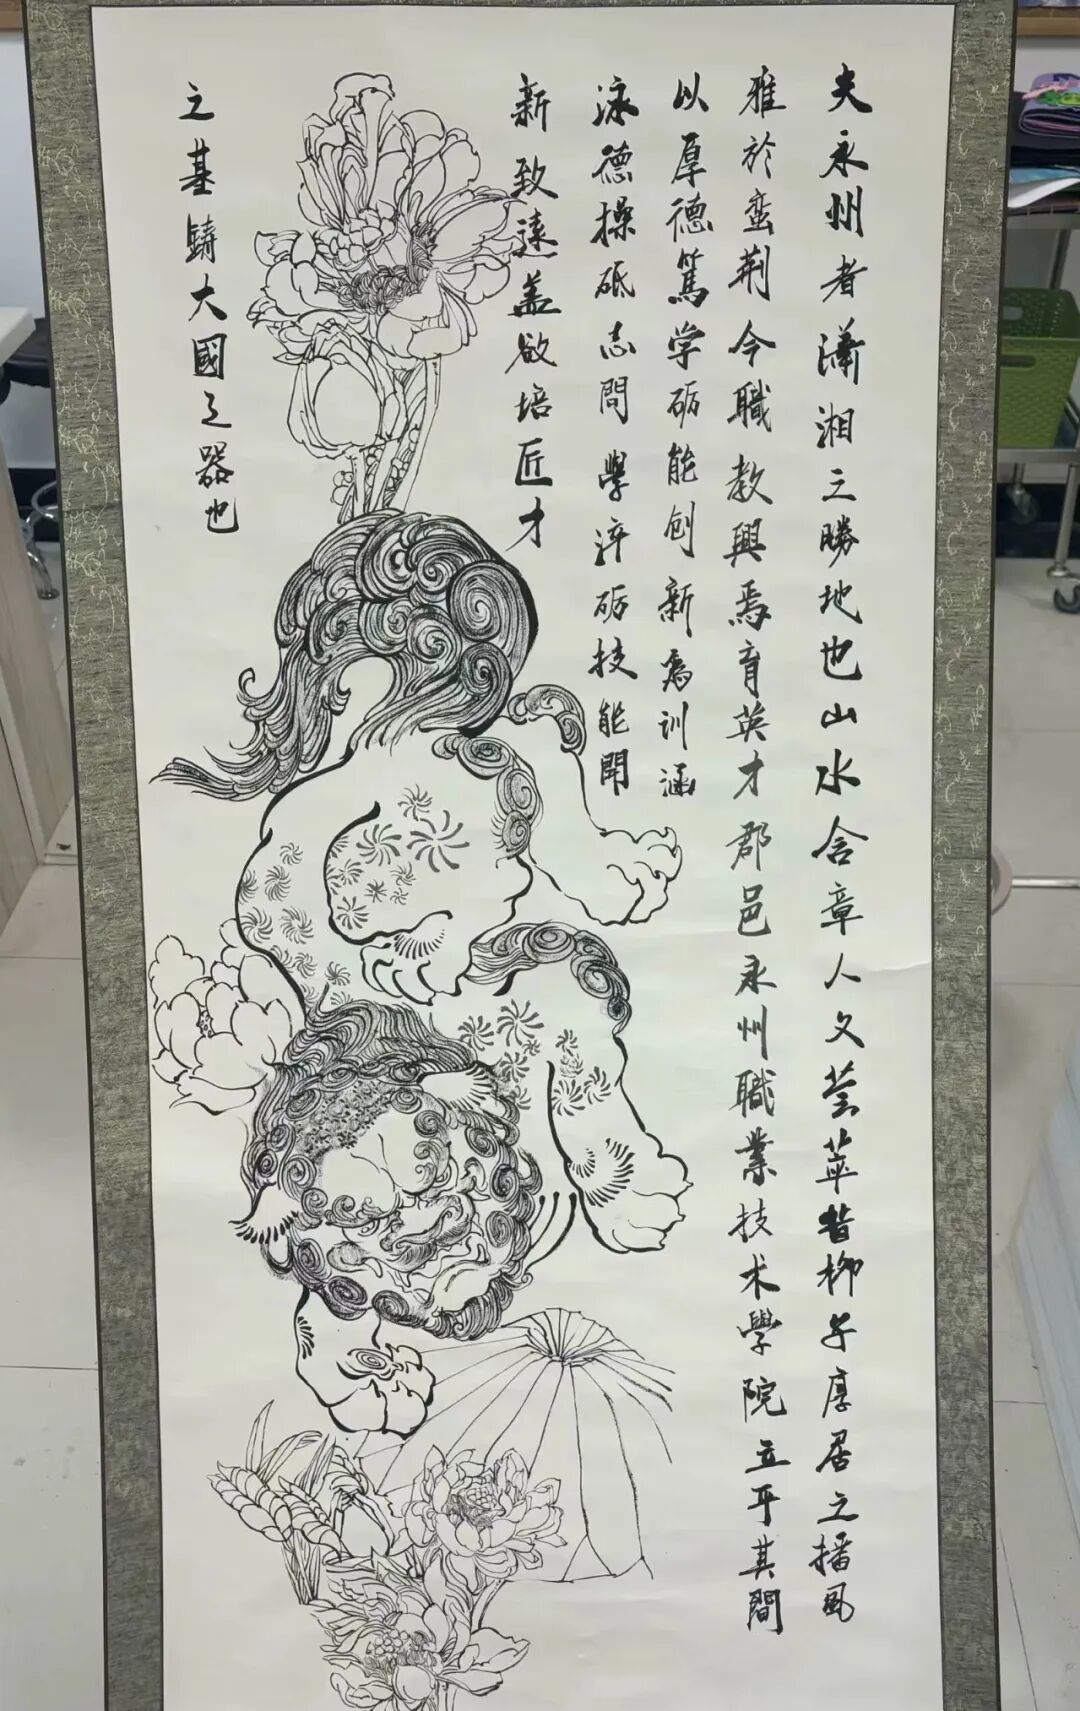 夫永州者瀟湘之勝地也山水含章人文荟萃昔柳子厚居之播风
雅於蛮荆今職教興焉育英才郡邑永州職業技术學院立乎其間
以厚德篤学砺能创新為训涵
泳德操砥志問學淬砺技能開
新致遠盖欲培匠才
之基鑄大國之器也